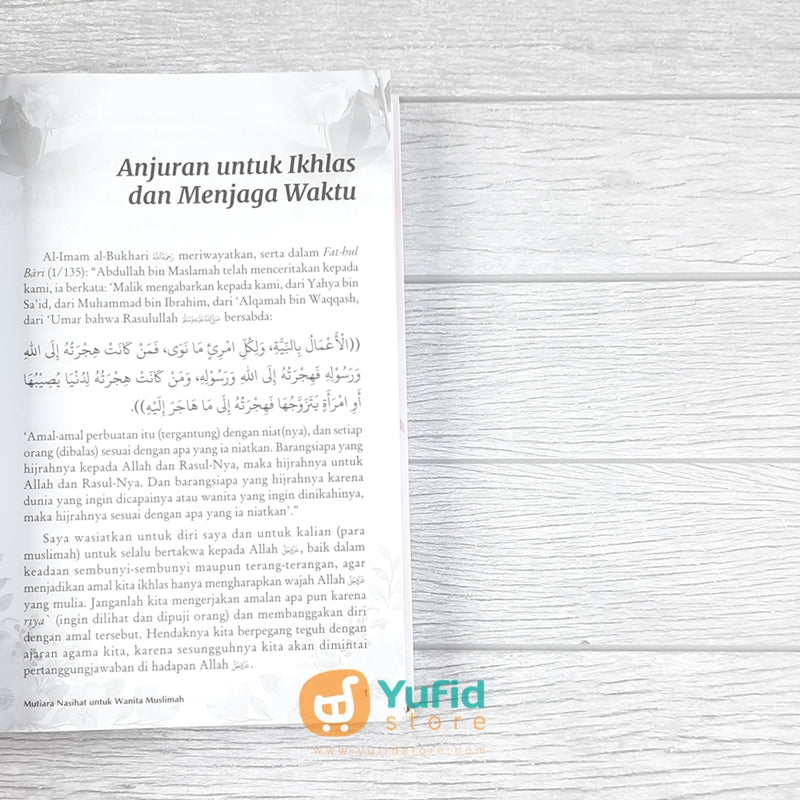 Anjuran untuk Ikhlas
dan Menjaga Waktu
Al-Imam al-Bukhari رحمه الله meriwayatkan, serta dalam Fat-hul
Bâri (1/135): “Abdullah bin Maslamah telah menceritakan kepada
kami, ia berkata: ‘Malik mengabarkan kepada kami, dari Yahya bin
Sa’id, dari Muhammad bin Ibrahim, dari ‘Alqamah bin Waqqash,
dari ‘Umar bahwa Rasulullah ﷺ bersabda:
((الْأَعْمَالُ بِالنِّيَّةِ، وَلِكُلِّ امْرِئٍ مَا نَوَى، فَمَنْ كَانَتْ هِجْرَتُهُ إِلَى اللهِ
وَرَسُوْلِهِ فَهِجْرَتُهُ إِلَى اللهِ وَرَسُوْلِهِ، وَمَنْ كَانَتْ هِجْرَتُهُ لِدُنْيَا يُصِيْبُهَا
أَوِ امْرَأَةٍ يَتَزَوَّجُهَا فَهِجْرَتُهُ إِلَى مَا هَاجَرَ إِلَيْهِ)).
‘Amal-amal perbuatan itu (tergantung) dengan niat(nya), dan setiap
orang (dibalas) sesuai dengan apa yang ia niatkan. Barangsiapa yang
hijrahnya kepada Allah dan Rasul-Nya, maka hijrahnya untuk
Allah dan Rasul-Nya. Dan barangsiapa yang hijrahnya karena
dunia yang ingin dicapainya atau wanita yang ingin dinikahinya,
maka hijrahnya sesuai dengan apa yang ia niatkan’.”
Saya wasiatkan untuk diri saya dan untuk kalian (para
muslimah) untuk selalu bertakwa kepada Allah عزوجل, baik dalam
keadaan sembunyi-sembunyi maupun terang-terangan, agar
menjadikan amal kita ikhlas hanya mengharapkan wajah Allah عزوجل
yang mulia. Janganlah kita mengerjakan amalan apa pun karena
riya` (ingin dilihat dan dipuji orang) dan membanggakan diri
dengan amal tersebut. Hendaknya kita berpegang teguh dengan
ajaran agama kita, karena sesungguhnya kita akan dimintai
pertanggungjawaban di hadapan Allah عزوجل.
Mutiara Nasihat untuk Wanita Muslimah 1
Yufid
store
www.yufidstore.com